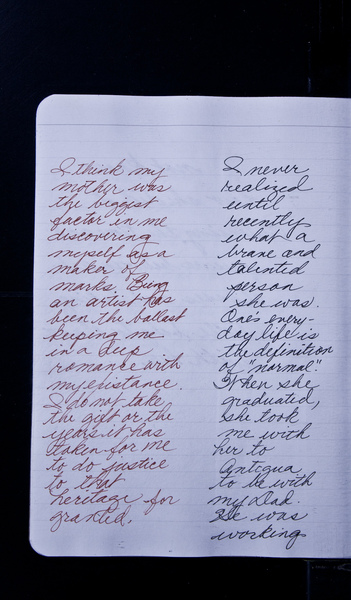 I think my
mother was
the biggest
factor in me
discovering
myself as a
maker of
marks. Being
an artist has
been the ballast
keeping me
in a deep
romance with
my existance.
I do not take
the gift or the
years it has
taken for me
to do justice
to that
heritage for
granted.
I never
realized
until
recently
what a
brave and
talented
person
she was.
One's every-
day life is
the definition
of "normal".
When she
graduated,
she took
me with
her to
Antigua
to be with
my Dad.
He was
working